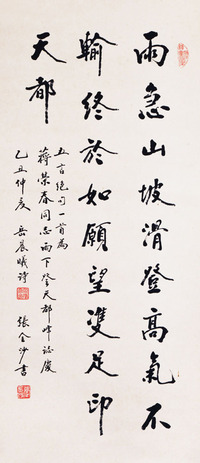 雨急山坡滑登高氣不
輸終於如願望雙足印
天都
五言絶句一首為
蔣榮春同志雨下登天都峰
乙丑仲夏 岳晨曦詩 張金沙書